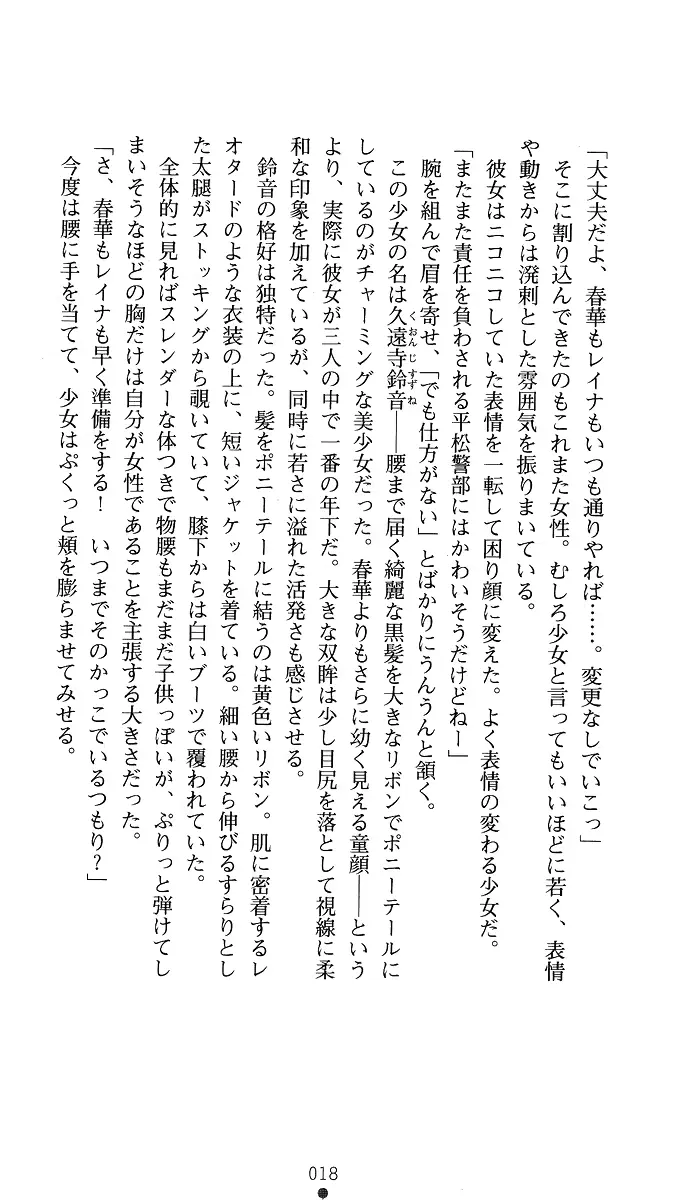 「大丈夫だよ、春華もレイナもいつも通りやれば……。変更なしでいこっ」
そこに割り込んできたのもこれまた女性。むしろ少女と言ってもいいほどに若く、表情
や動きからは溌剌とした雰囲気を振りまいている。
彼女はニコニコしていた表情を一転して困り顔に変えた。よく表情の変わる少女だ。
「またまた責任を負わされる平松警部にはかわいそうだけどねー」
腕を組んで眉を寄せ、「でも仕方がない」とばかりにうんうんと頷く。
この少女の名は久遠寺鈴音――腰まで届く綺麗な黒髪を大きなリボンでポニーテールに
くおんじすずね
しているのがチャーミングな美少女だった。春華よりもさらに幼く見える童顔――という
より、実際に彼女が三人の中で一番の年下だ。大きな双眸は少し目尻を落として視線に柔
和な印象を加えているが、同時に若さに溢れた活発さも感じさせる。
鈴音の格好は独特だった。髪をポニーテールに結うのは黄色いリボン。肌に密着するレ
オタードのような衣装の上に、短いジャケットを着ている。細い腰から伸びるすらりとし
た太腿がストッキングから覗いていて、膝下からは白いブーツで覆われていた。
全体的に見ればスレンダーな体つきで物腰もまだまだ子供っぽいが、ぷりっと弾けてし
まいそうなほどの胸だけは自分が女性であることを主張する大きさだった。
「さ、春華もレイナも早く準備をする！　いつまでそのかっこでいるつもり？」
今度は腰に手を当てて、少女はぷくっと頬を膨らませてみせる。
018